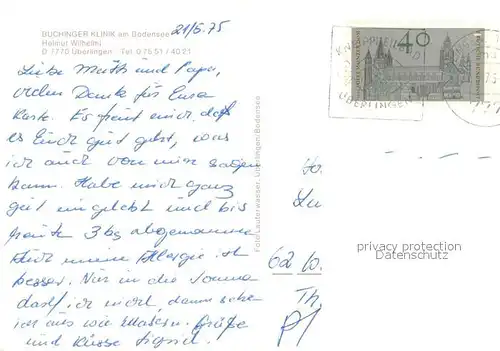 BUCHINGER KLINIK am Bodensee
Helmut Wilhelmi
D 7770 Überlingen Tel. 0 75 51 / 40 21
21/5.75
Liebe Mutti und Papa,
vielen Dank für Eure
Karte. Es freut mich, daß
es Euch gut geht, was
ich auch von mir sagen
kann. Habe mich ganz
gut eingelebt und bis
heute 3 kg abgenommen
Auch meine Allergie ist
besser. Nur in die Sonne
darf ich nicht, dann sehe
ich aus wie Masern. Grüße
und Küsse Sigrid.
Foto Lauterwasser, Überlingen/Bodensee
40
ÜBERLINGEN
62 W.
privacy protection
Datenschutz